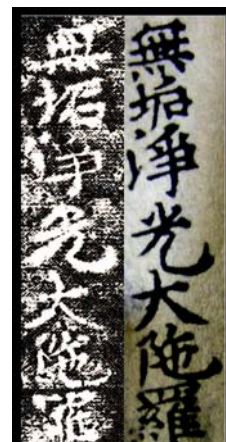 無垢淨光大陁羅
無垢淨光大陁羅